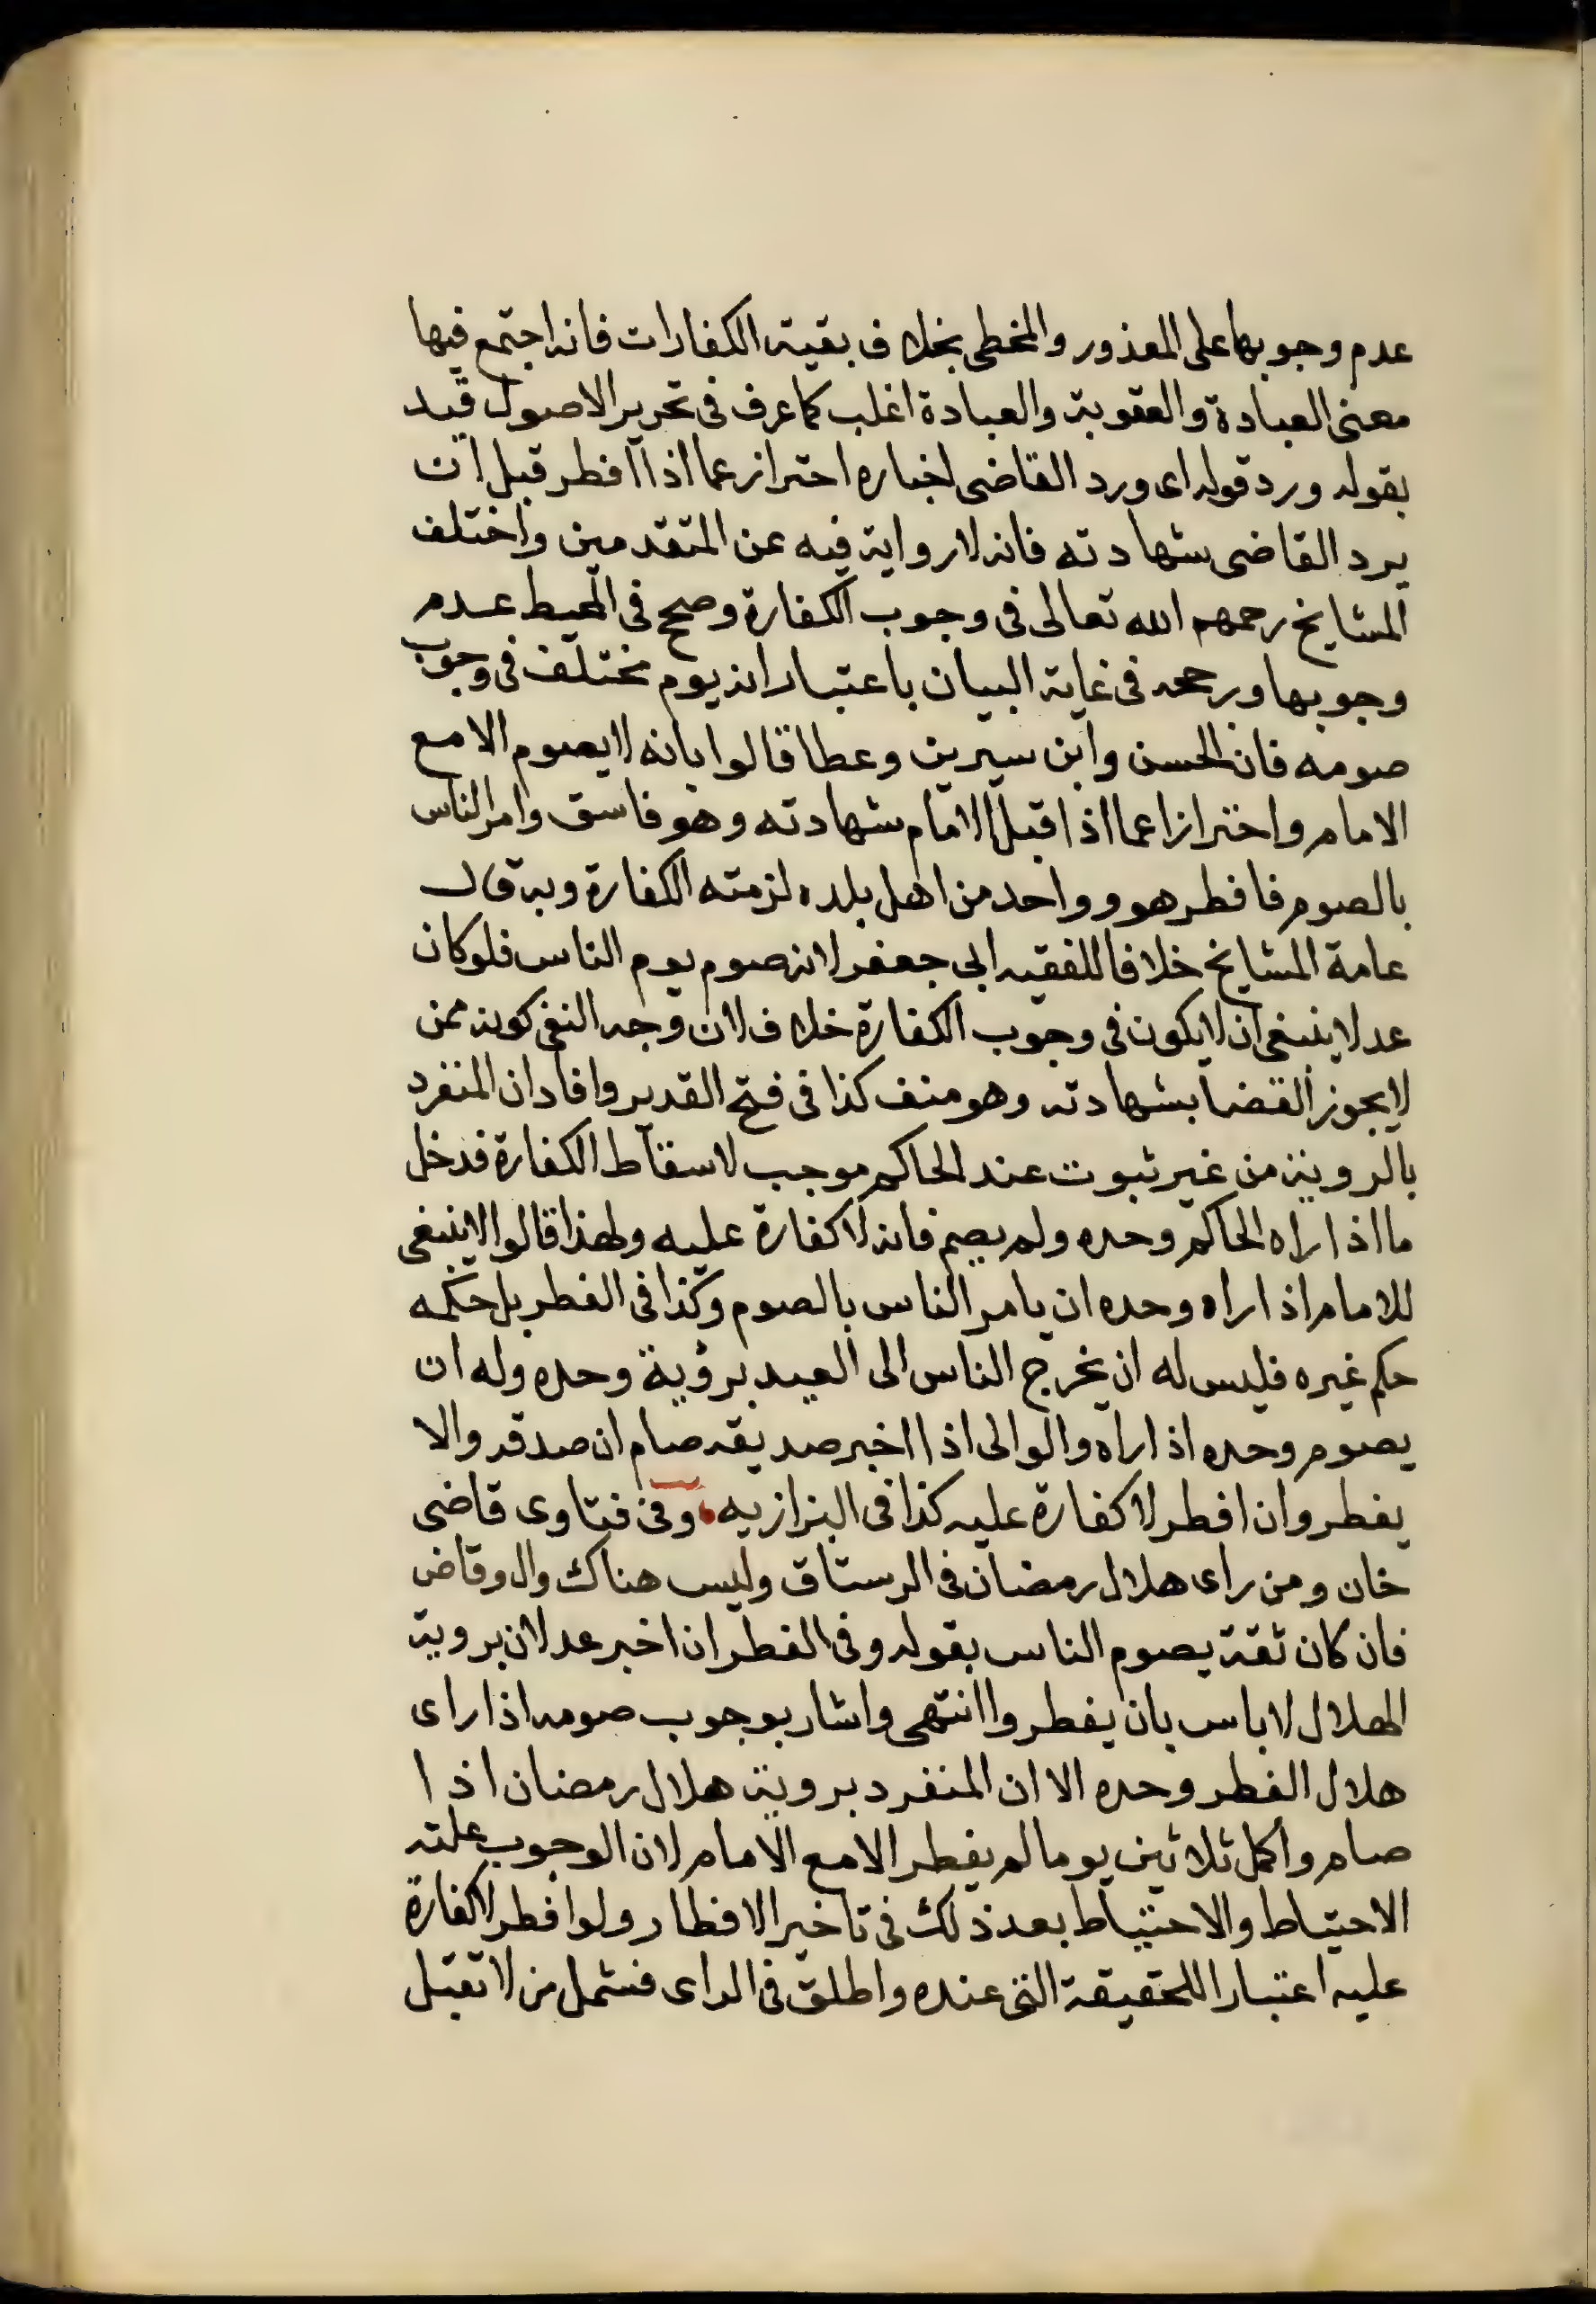 عدم وجوبها على المعذور والمخطى بخلاف بقية الكفارات فانه اجتمع فيها
معنى العبادة والعقوبة والعبادة اغلب كما عرف فى تحرير الاصول قيد
بقوله ورد قوله اى ورد القاضى اخباره احتراز عما اذا افطر قبل ان
يرد القاضى شهادته فانه لا رواية فيه عن المتقدمين واختلف
المشايخ رحمهم الله تعالى فى وجوب الكفارة وصحح فى المحيط عدم
وجوبها ورجحه فى غاية البيان باعتبار انه يوم مختلف فى وجوب
صومه فان الحسن وابن سيرين وعطا قالوا بانه لا يصوم الا مع
الامام واحترازا عما اذا قبل الامام شهادته وهو فاسق وامر الناس
بالصوم فافطر هو وواحد من اهل بلده لزمته الكفارة وبه قال
عامة المشايخ خلافا للفقيه ابى جعفر لانه صوم يوم الناس فلو كان
عدلا ينبغى ان لا يكون فى وجوب الكفارة خلاف لان وجه النفى كونه ممن
لا يجوز القضا بشهادته وهو منف كذا فى فتح القدير وافاد ان المنفرد
بالروية من غير ثبوت عند الحاكم موجب لاسقاط الكفارة فدخل
ما اذا راه الحاكم وحده ولم يصم فانه لا كفارة عليه ولهذا قالوا لا ينبغى
للامام اذا راه وحده ان يامر الناس بالصوم وكذا فى الفطر بل حكمه
حكم غيره فليس له ان يخرج الناس الى العيد برؤية وحده وله ان
يصوم وحده اذا راه والوالى اذا اخبر صديقه صام ان صدقه والا
يفطر وان افطر لا كفارة عليه كذا فى البزازيه وفى فتاوى قاضى
خان ومن راى هلال رمضان فى الرستاق وليس هناك وال وقاض
فان كان ثقة يصوم الناس بقوله وفى الفطر ان اخبر عدلان بروية
الهلال لا باس بان يفطروا انتهى واشار بوجوب صومه اذا راى
هلال الفطر وحده الا ان المنفرد بروية هلال رمضان اذا
صام واكمل ثلاثين يوما لم يفطر الا مع الامام لان الوجوب عليه
الاحتياط والاحتياط بعد ذلك فى تاخير الافطار ولو افطر لا كفارة
عليه اعتبارا للحقيقة التى عنده واطلق فى الراى فشمل من لا تقبل